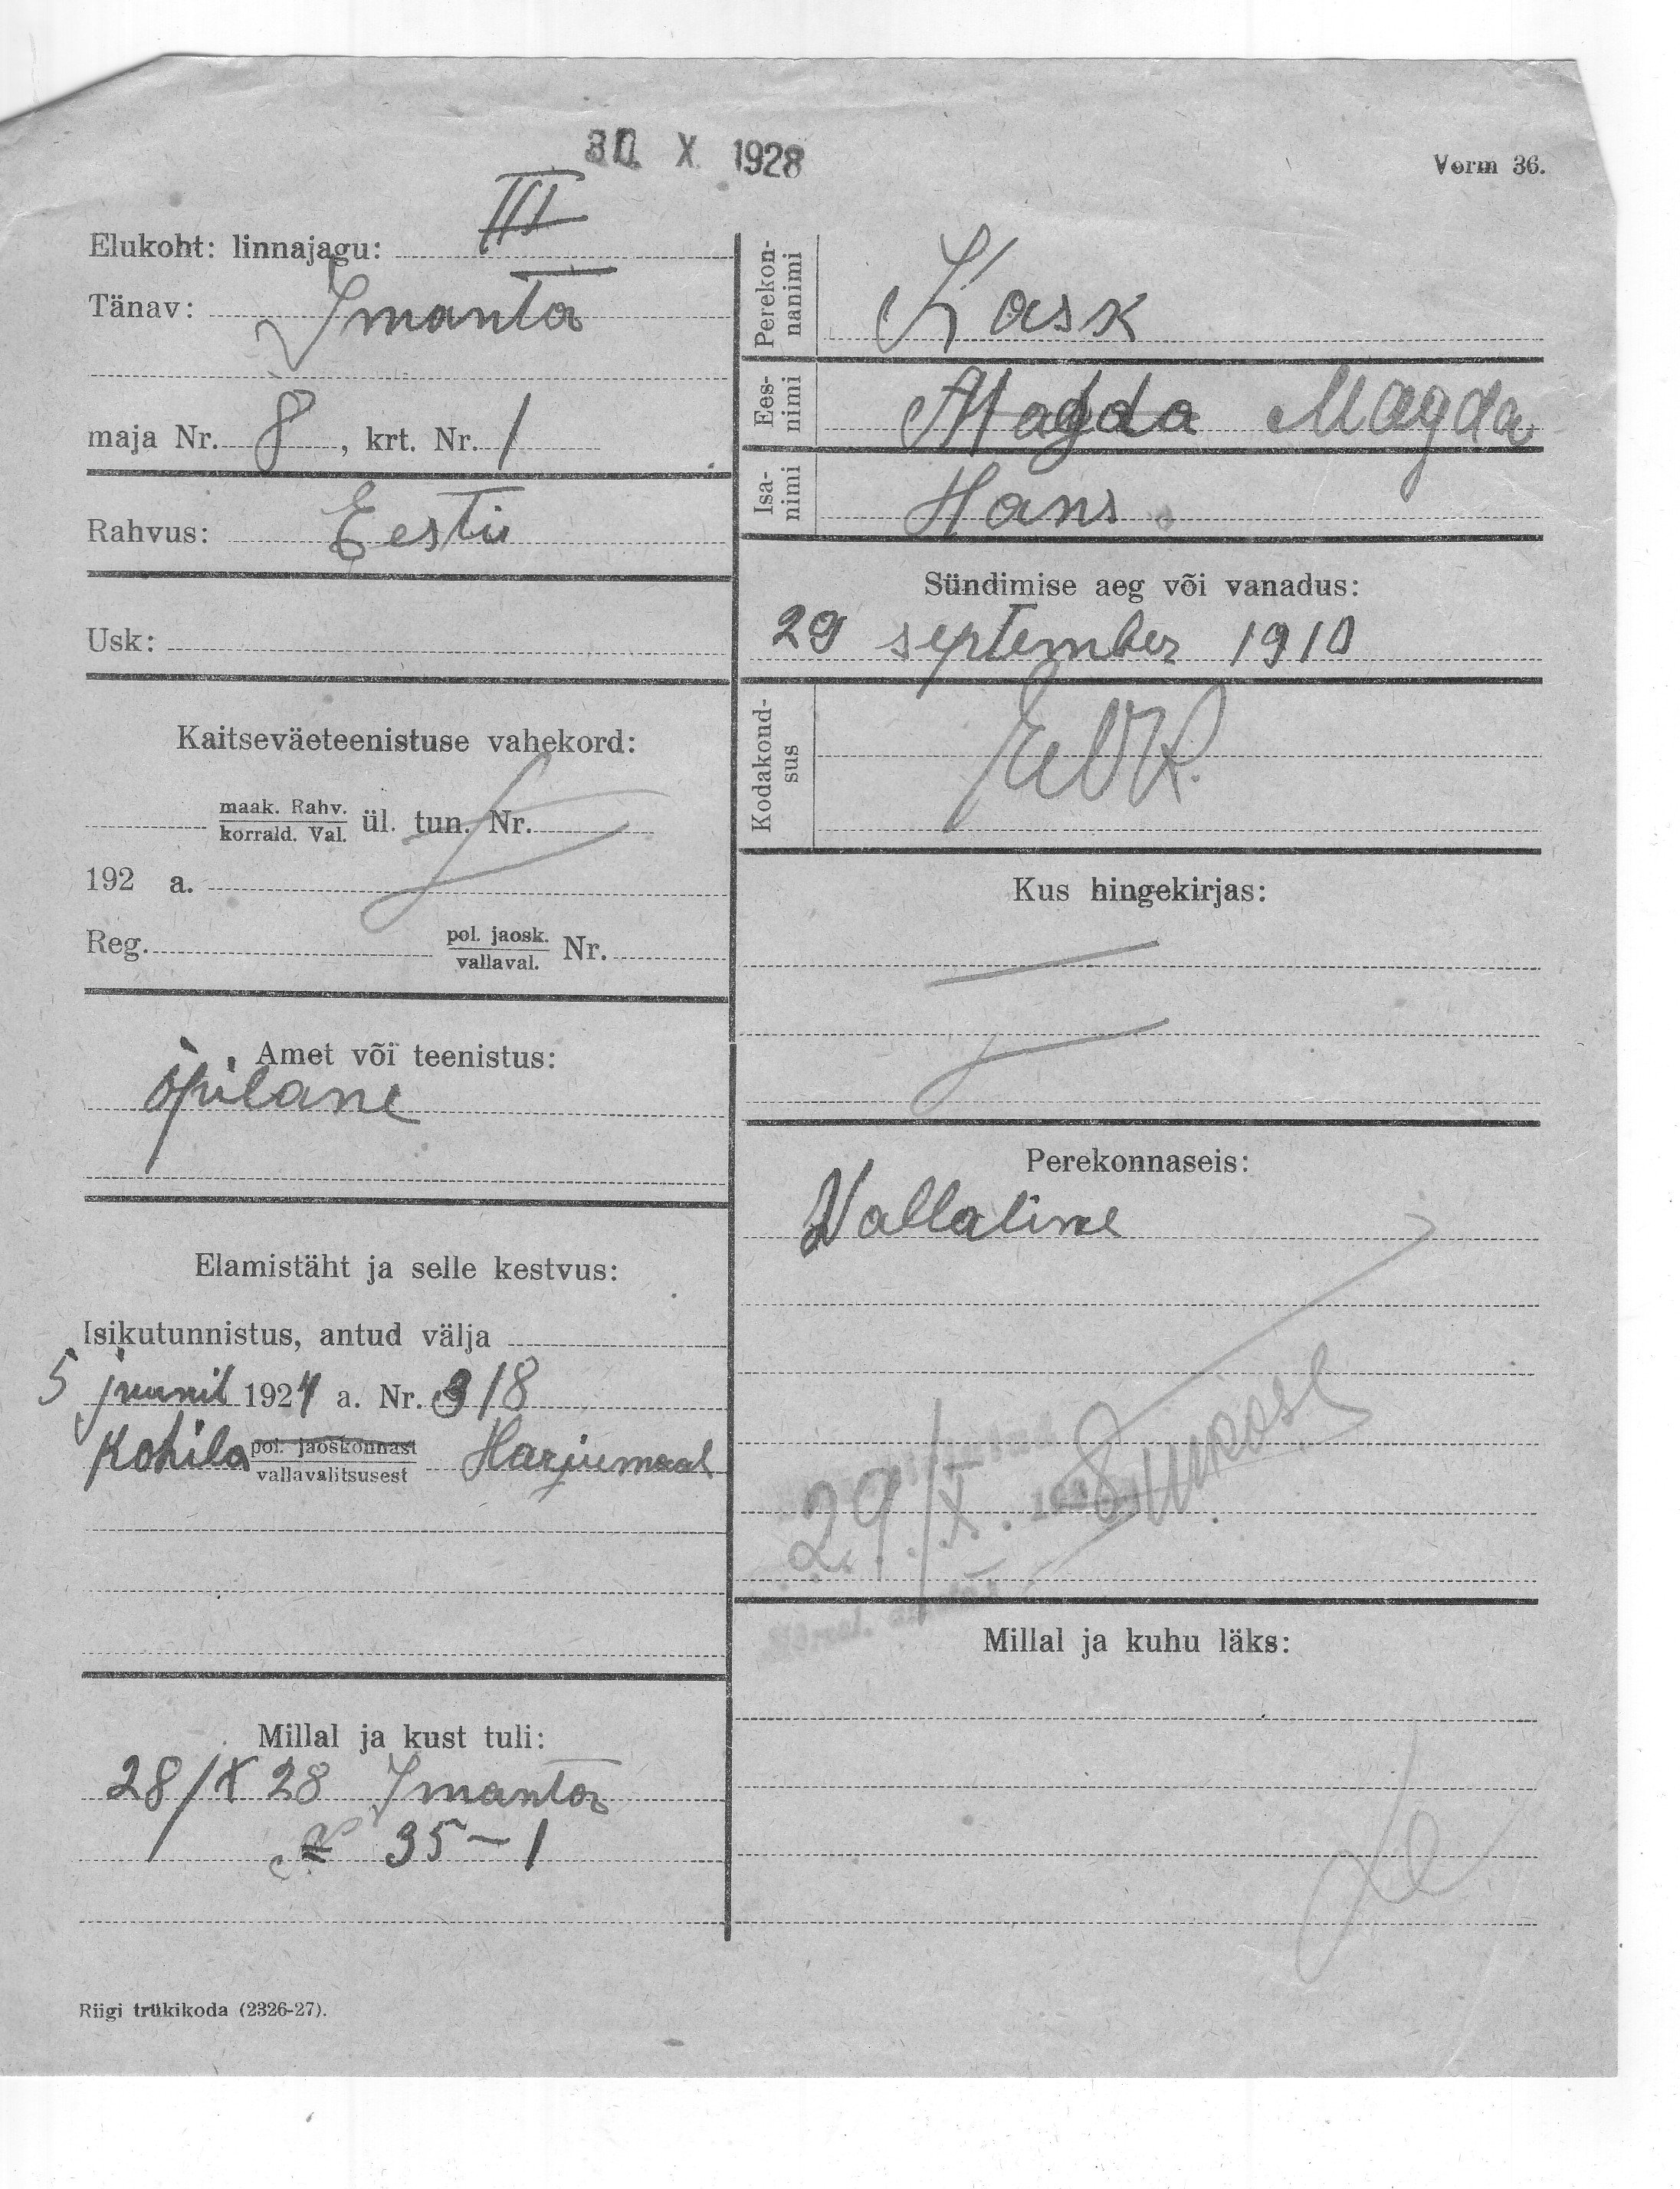 30. X 1928
Vorm 36.
Elukoht: linnajagu: III
Tänav: Imanta
maja Nr. 8, krt. Nr. 1
Rahvus: Eesti
Usk:
Kaitseväeteenistuse vahekord:
maak. Rahv.
korrald. Val. ül. tun. Nr.
192 a.
Reg. pol. jaosk.
vallaval. Nr.
Amet või teenistus:
õpilane
Elamistäht ja selle kestvus:
Isikutunnistus, antud välja
5 juunil 1924 a. Nr. 318
Kohila pol. jaoskonnast
vallavalitsusest Harjumaal
Millal ja kust tuli:
28/X 28 Imanta
35-1
Riigi trükikoda (2326-27).
Perekon-
nanimi Kask
Ees-
nimi Magda Magda
Isa-
nimi Hans
Sündimise aeg või vanadus:
29 september 1910
Kodakond-
sus EVK.
Kus hingekirjas:
Perekonnaseis:
Vallaline
29/X. 192
Millal ja kuhu läks: